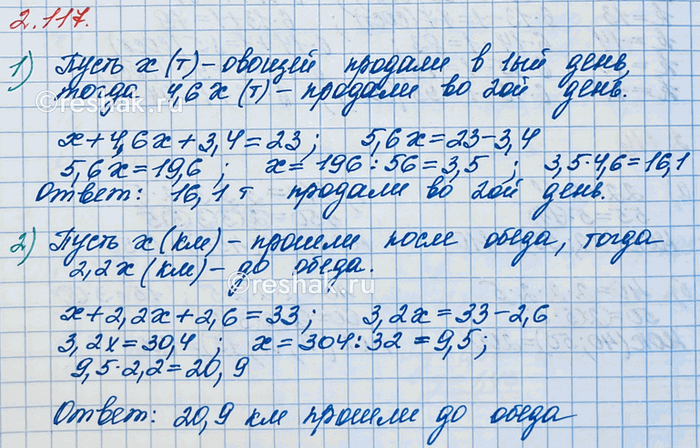 2.117.
1) Пусть x (т) – овощей продали в 1ый день,
тогда 4,6x (т) – продали во 2ой день.
x + 4,6x + 3,4 = 23 ; 5,6x = 23 – 3,4
5,6x = 19,6 ; x = 196 : 56 = 3,5 ; 3,5·4,6 = 16,1
Ответ: 16,1 т продали во 2ой день.
2) Пусть x (км) – прошли после обеда, тогда
2,2x (км) – до обеда.
x + 2,2x + 2,6 = 33 ; 3,2x = 33 – 2,6
3,2x = 30,4 ; x = 304 : 32 = 9,5 ;
9,5·2,2 = 20,9
Ответ: 20,9 км прошли до обеда
©reshak.ru
©reshak.ru